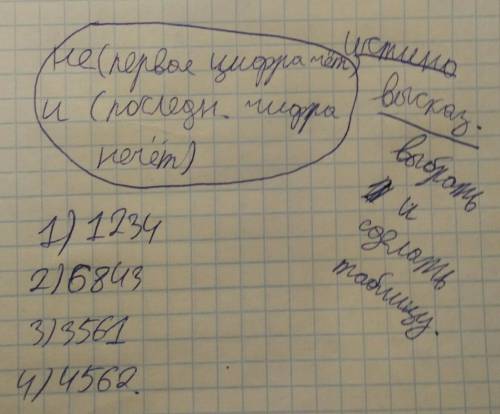 не(первое цифра чёт)
и (последн. цифра
нечёт)
истино
высказ.
выбрать
и
сделать
таблицу.
1) 1234
2) 6843
3) 3561
4) 4562.